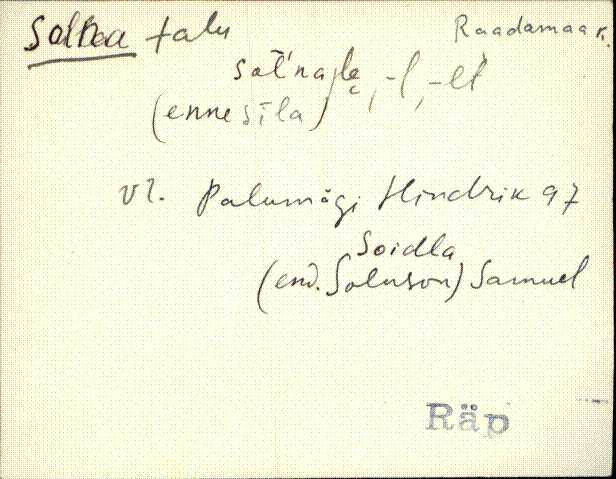 Solna talu Raadamaa k.
sol'na|le, -l, -lt
(enne sīla)
vt. Palumägi Hindrik 97
Soidla
(end. Solnson) Samuel
Räp